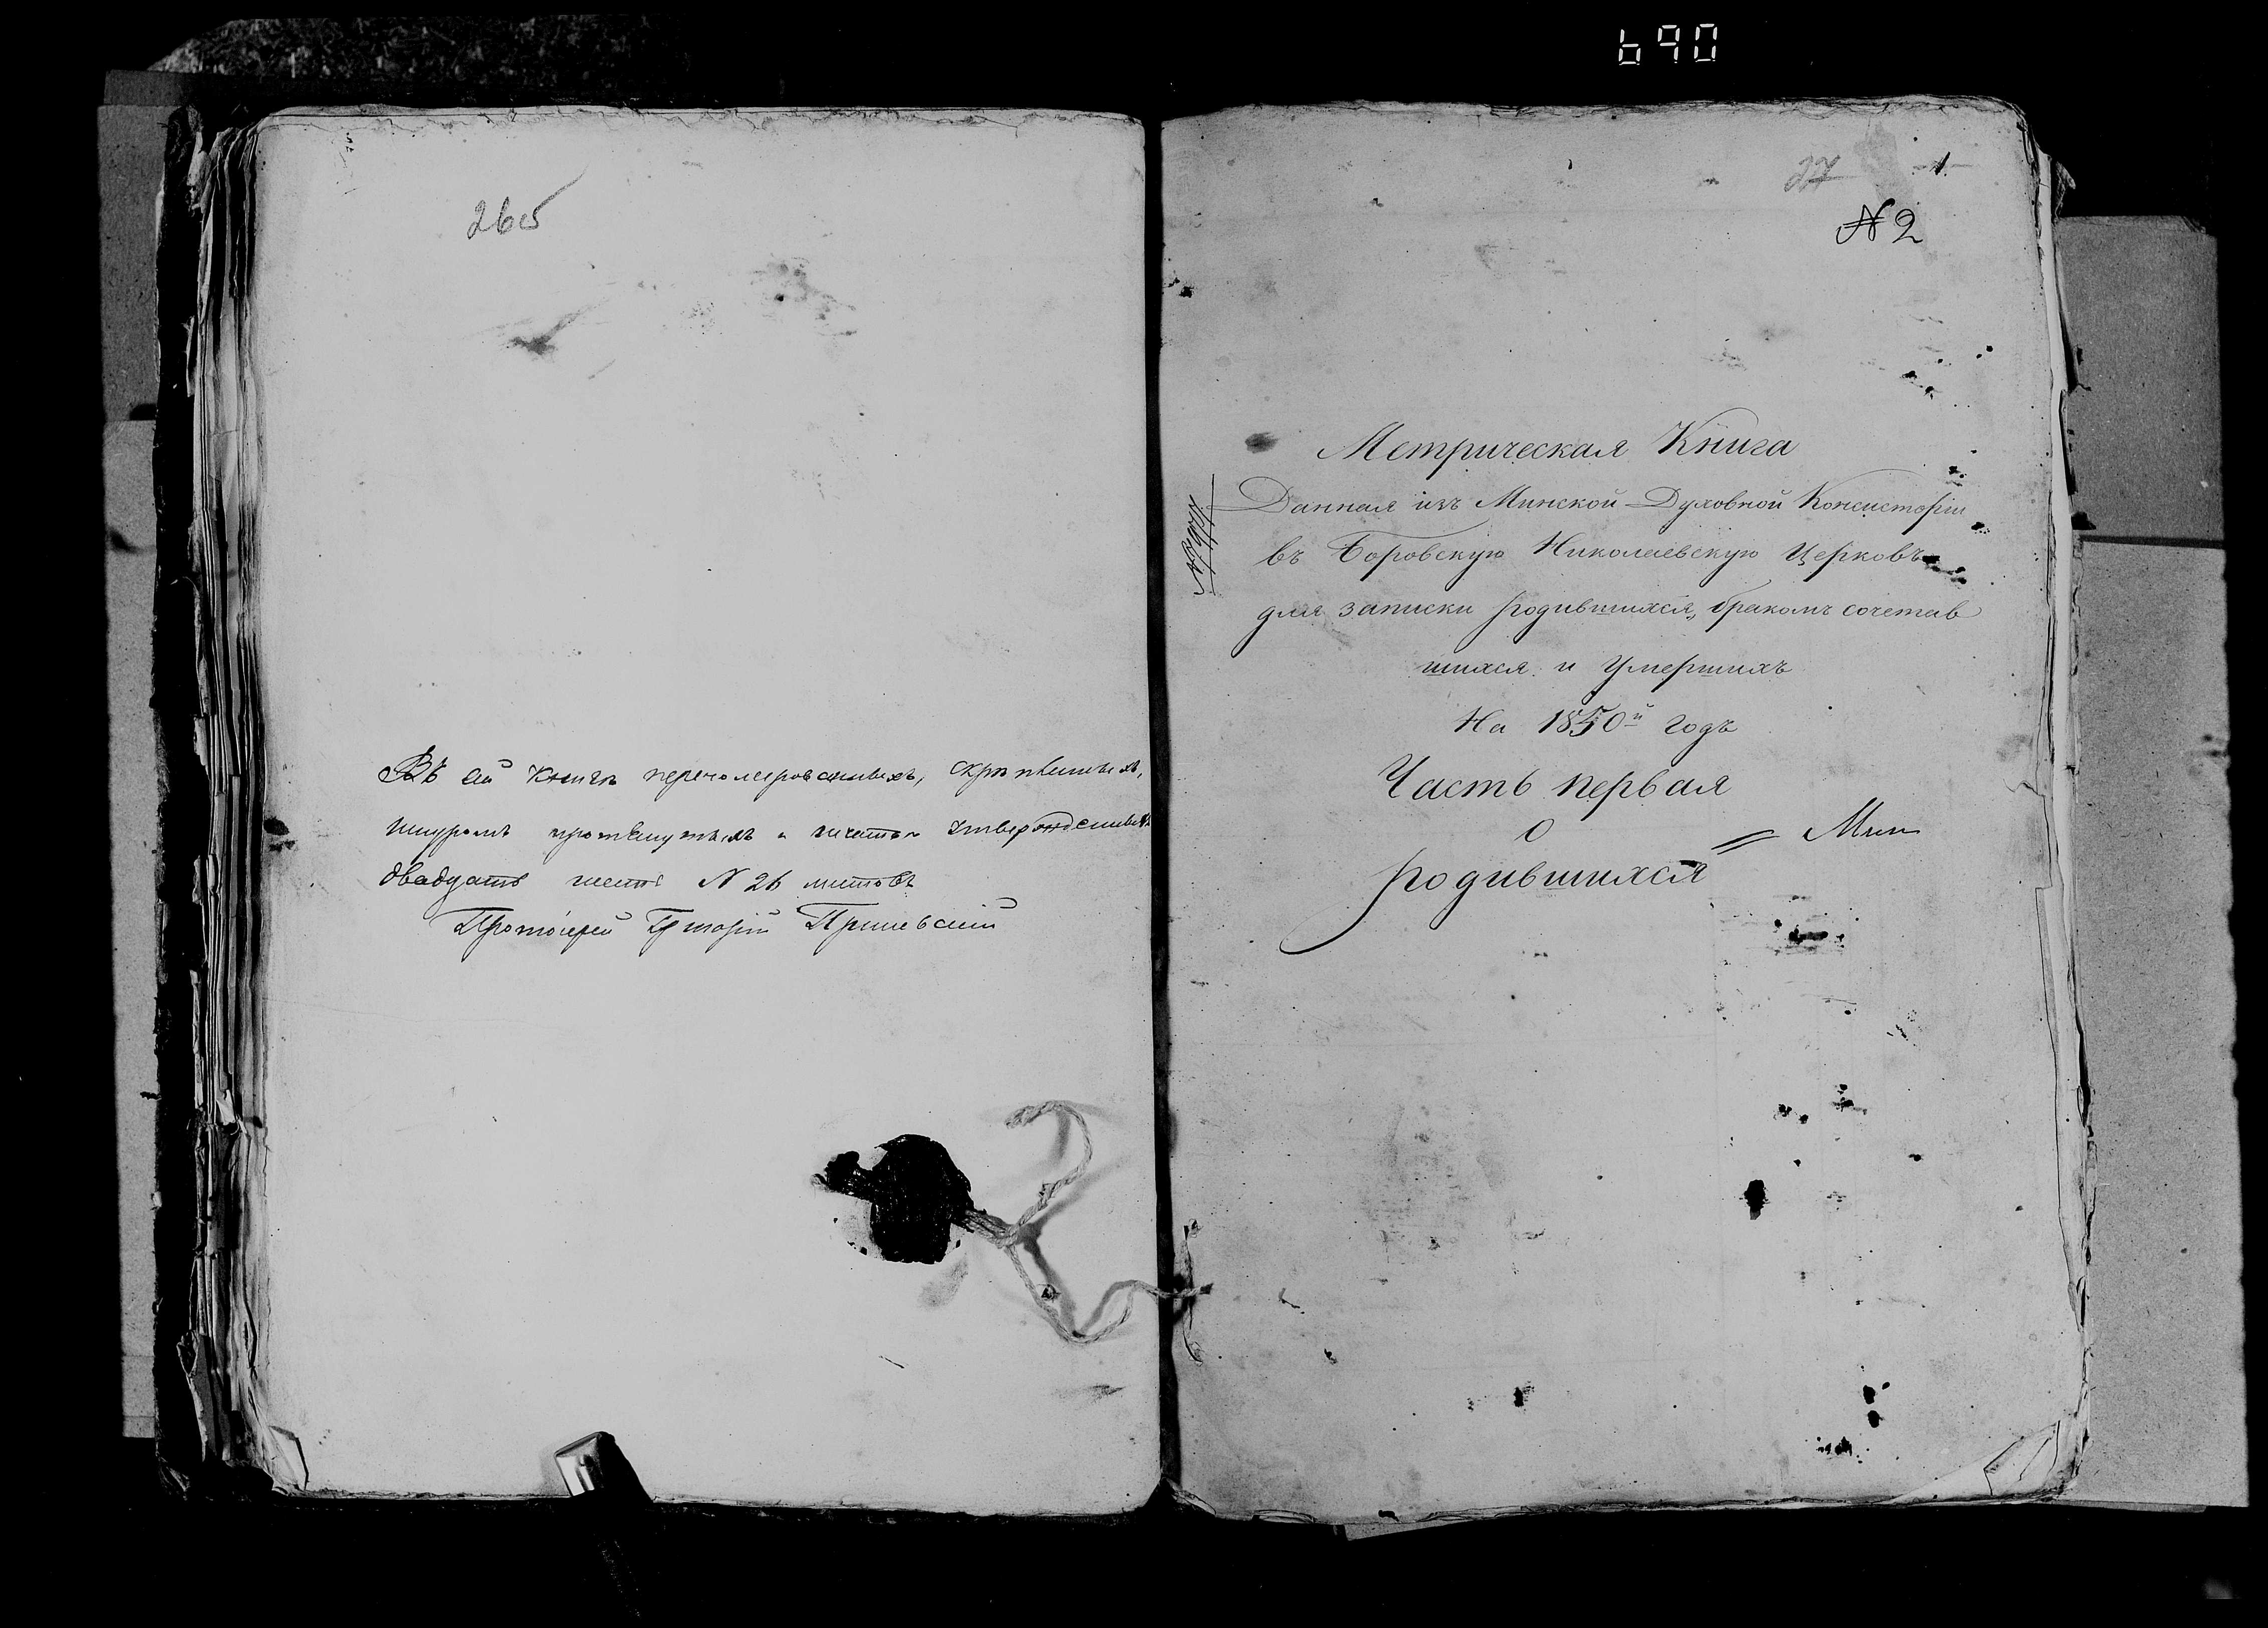 690
265
Въ сей книгѣ перенумерованныхъ, скрѣпленныхъ,
шнуромъ протянутыхъ и печатью утвержденныхъ
двадцать шесть N 26 листовъ
Протоіерей Григорій
27 1
N 2
Метрическая Книга
Данная изъ Минской Духовной Консисторіи
въ Боровскую Николаевскую Церковь
для записки родившихся, бракомъ сочетав
шихся и умершихъ
На 1850й годъ
Часть первая
О
родившихся